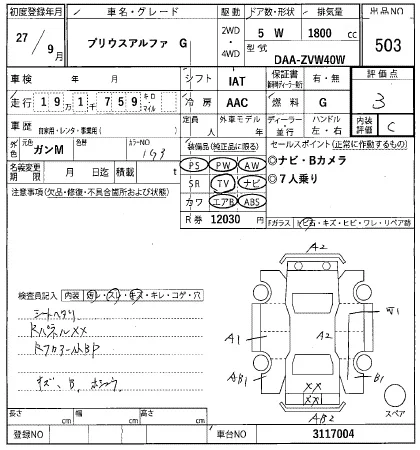 初度登録年月 車名・グレード 駆動 ドア数・形状 排気量 出品NO
27/9月 プリウスアルファ G 2WD・4WD 5 W 1800 cc 503
型式 DAA-ZVW40W
車検 年 月 シフト IAT 保証書 有・無 評価点
走行 19万1千759 キロ・マイル 冷房 AAC 燃料 G 3
車歴 自家用・レンタ・事業用( ) 定員 人 外車モデル 年 ディーラー・並行 ハンドル 左・右 内装評価 C
元色 ガンM 色替 カラーNO 1G3
装備品(純正品に限る) セールスポイント(正常に作動するもの)
名義変更期限 月 日迄 積載 t
PS PW AW ◎ナビ・Bカメラ
SR TV ナビ ◎7人乗り
注意事項(欠品・修復・不具合箇所および状態)
カワ エアB ABS
R券 12030 円
Fガラス ヒビ石・キズ・ヒビ・ワレ・リペア跡
A2
検査員記入 内装 汚レ・スレ・キズ・キレ・コゲ・穴
シートヘタリ
RパネルXX
A1 A2
キズ、B、
AB1 B1
XX
XX
AB2
スペア
長さ cm 幅 cm 高さ cm
登録NO 車台NO 3117004